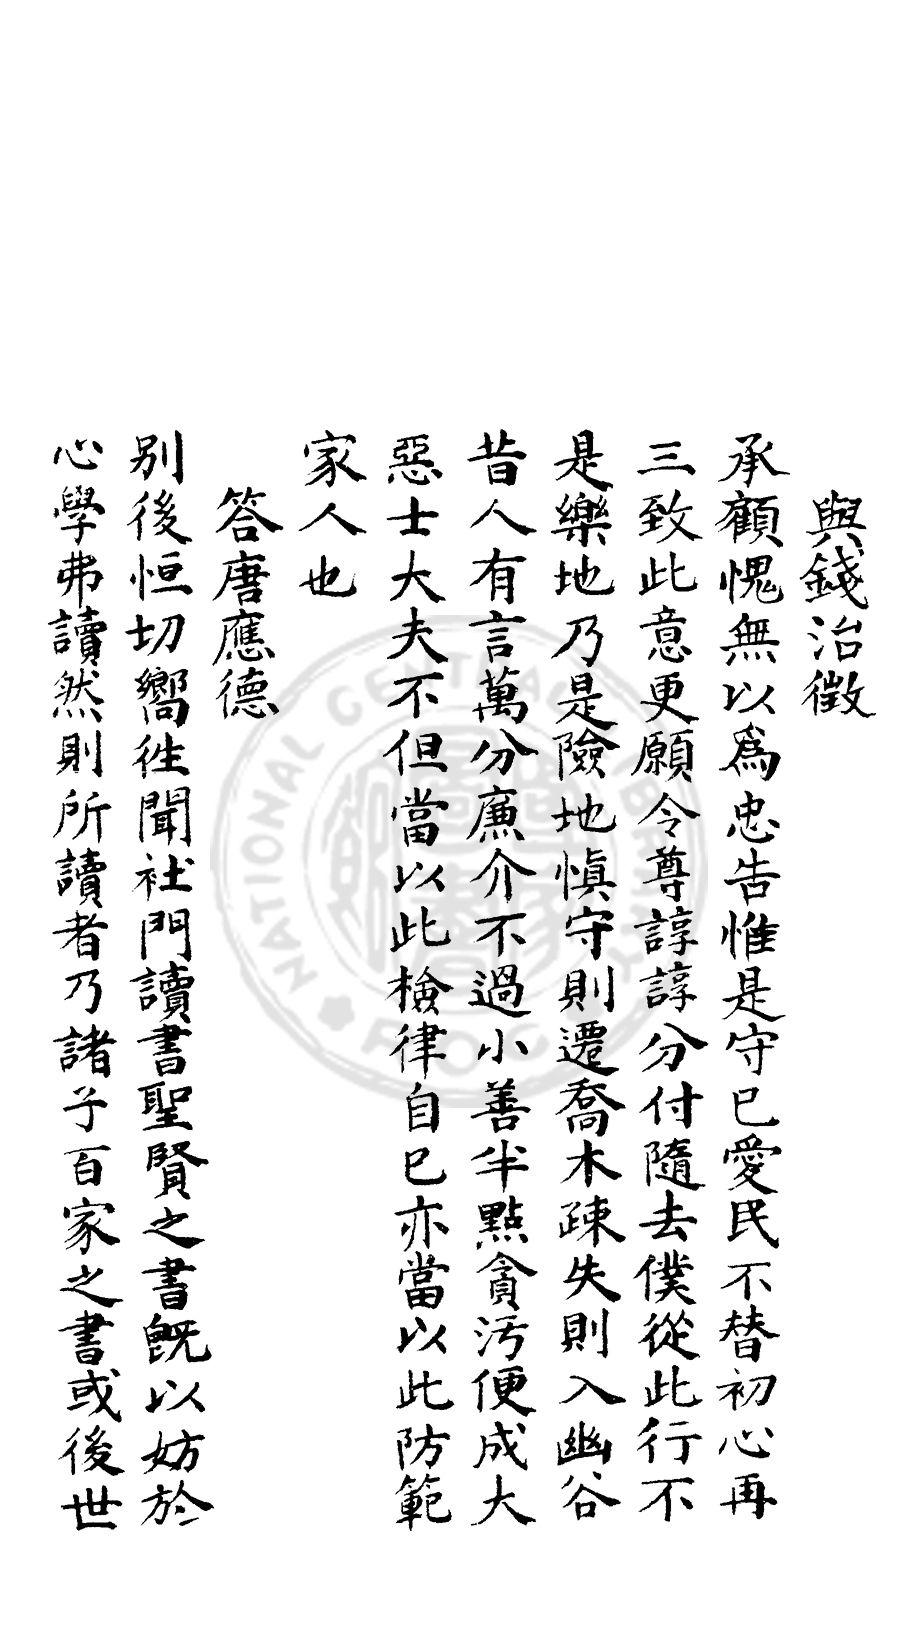 與錢治徵
承顧愧無以爲忠告惟是守已愛民不替初心再
三致此意更願令尊諄諄分付隨去僕從此行不
是樂地乃是險地慎守則遷喬木疎失則入幽谷
昔人有言萬分廉介不過小善半點貪汚便成大
惡士大夫不但當以此檢律自已亦當以此防範
家人也
答唐應德
别後恒切嚮徃聞社門讀書聖賢之書旣以妨於
心學弗讀然則所讀者乃諸子百家之書或後世
NATIONAL CENTRAL LIBRARY R.O.C.